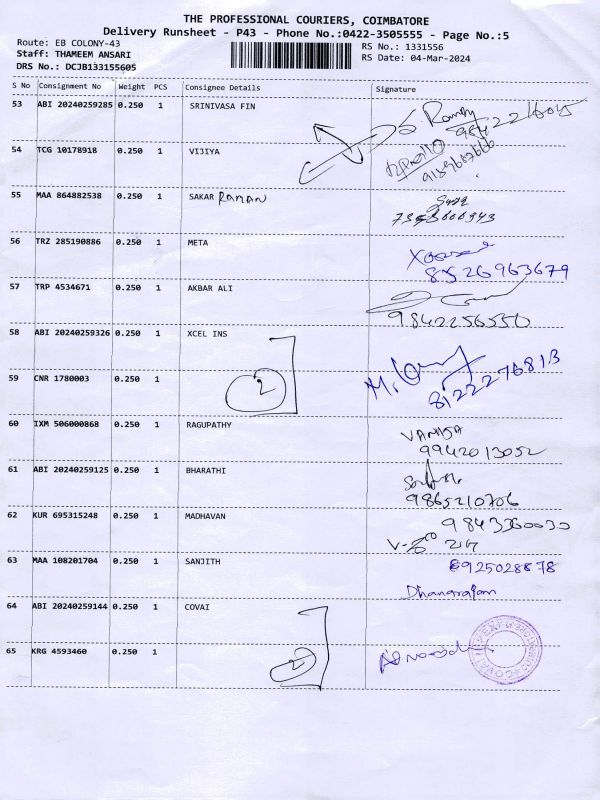 THE PROFESSIONAL COURIERS, COIMBATORE
Delivery Runsheet - P43 - Phone No.:0422-3505555 - Page No.:5
Route: EB COLONY-43
RS No.: 1331556
Staff: THAMEEM ANSARI
RS Date: 04-Mar-2024
DRS No.: DCJB133155605
S No Consignment No Weight PCS Consignee Details Signature
53 ABI 20240259285 0.250 1 SRINIVASA FIN
54 TCG 10178918 0.250 1 VIJIYA
55 MAA 864882538 0.250 1 SAKAR RAMAN
56 TRZ 285190886 0.250 1 META
8526963679
57 TRP 4534671 0.250 1 AKBAR ALI
9842256550
58 ABI 20240259326 0.250 1 XCEL INS
2
8122276813
59 CNR 1780003 0.250 1
60 IXM 506000868 0.250 1 RAGUPATHY
VANAJA
9942013052
61 ABI 20240259125 0.250 1 BHARATHI
9865210706
62 KUR 695315248 0.250 1 MADHAVAN
9843360030
63 MAA 108201704 0.250 1 SANJITH
8925028878
Dhanarajan
64 ABI 20240259144 0.250 1 COVAI
2
65 KRG 4593460 0.250 1